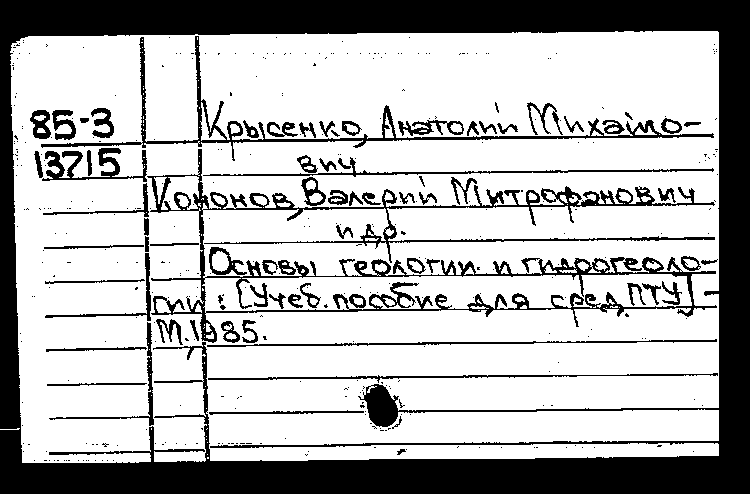 85-3
13715
Крысенко, Анатолий Михайло-
вич.
Кононов, Валерий Митрофанович
и др.
Основы геологии и гидрогеоло-
гии : [Учеб. пособие для сред. ПТУ] -
М., 1985.